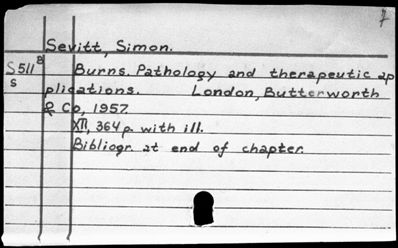 7
Sevitt, Simon.
S511 B Burns. Pathology and therapeutic ap
s plications. London, Butterworth
& Co, 1957.
XII, 364 p. with ill.
Bibliogr. at end of chapter.